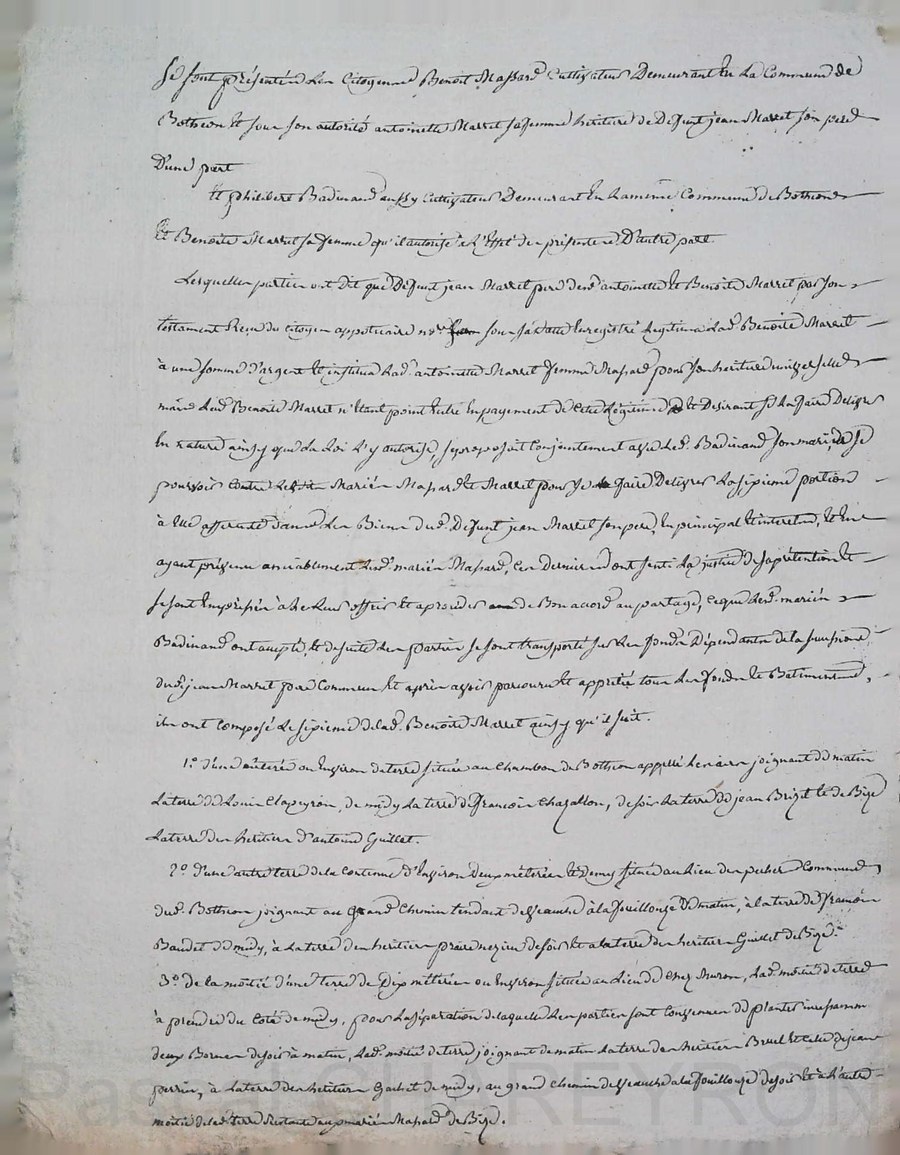 Se sont présentés les Citoyens Benoit Massard Cultivateur Demeurant En La Commune de
Botheon Et sous son autorité antoinette Marret sa femme heritiere de Defunt jean Marret son pere
D'une part
Et philibert Badinand aussy Cultivateur Demeurant En Commune de Botheon
Et Benoite Marret sa femme qu'il autorise a L'Effet des presentes D'autre part
Lesquelles parties ont Dit que Defunt jean Marret pere desd. antoinette Et Benoite Marret par son
testament Reçu du Citoyen appoticaire sous sa datte Enregistré Legitima Lad. Benoite Marret
à une somme d'argent Et institua Lad. antoinette Marret femme Massard pour son heritiere universelle
mais Lad. Benoite Marret n'Etant point Entré En payement de Cette Légitime Et Desirant se La faire Delivrer
En nature ainsy que La Loi L'y autorise, se proposoit Conjointement avec Led. Badinand son mari, de se
pourvoir Contre Les Mariés Massard Et Marret pour se faire Delivrer La sixieme portion
à Elle afferente dans Les Biens dud. Defunt jean Marret son pere, En principal Et interets, Et En
ayant prévenu amiablement Lesd. mariés Massard, Ces Derniers ont senti La justice de sa prétention Et
se sont Empressés à Le Leur offrir Et a proceder de Bon accord au partage, Ce que Lesd. mariés
Badinand ont accepté, Et de suite Les parties se sont transporté sur Les fonds Dépendants de la succession
dud. jean Marret pere Commun Et après avoir parcouru Et apprétié tous Les fonds Et Batiments,
ils ont Composé Le sixieme de Lad. Benoite Marret ainsy qu'il suit.
1.° d'une ou Environ de terre située au Chambon de Botheon appellé joignant de matin
La terre de Louis Clapeyron, de midy La terre de francois Chazallon, de soir La terre de jean Brizet Et de Bize
La terre des heritiers d'antoine Guillet.
2.° d'une autre terre de la Contenue d'Environ Deux méterées Et Demy située au Lieu des Commune
dud. Botheon joignant au Grand Chemin tendant de à la fouillouze de matin, à la terre de francois
Baudet de midy, à La terre des heritiers de soir Et a la terre des heritiers Guillet de Bize.
3.° de La moitié d'une terre de Dix mettérées ou Environ située au Lieu de Chez Muron, Lad. moitié de terre
à prendre du Coté de midy, pour La séparation de laquelle Les parties sont Convenues de planter incessamment
deux Bornes de soir à matin, Lad. moitié de terre joignant de matin La terre des heritiers Et Celle de jean
perrin, à La terre des heritiers de midy, au grand Chemin de a la fouillouze de soir Et à L'autre
moitié de Lad. terre Restante auxd. mariés Massard de Bize.